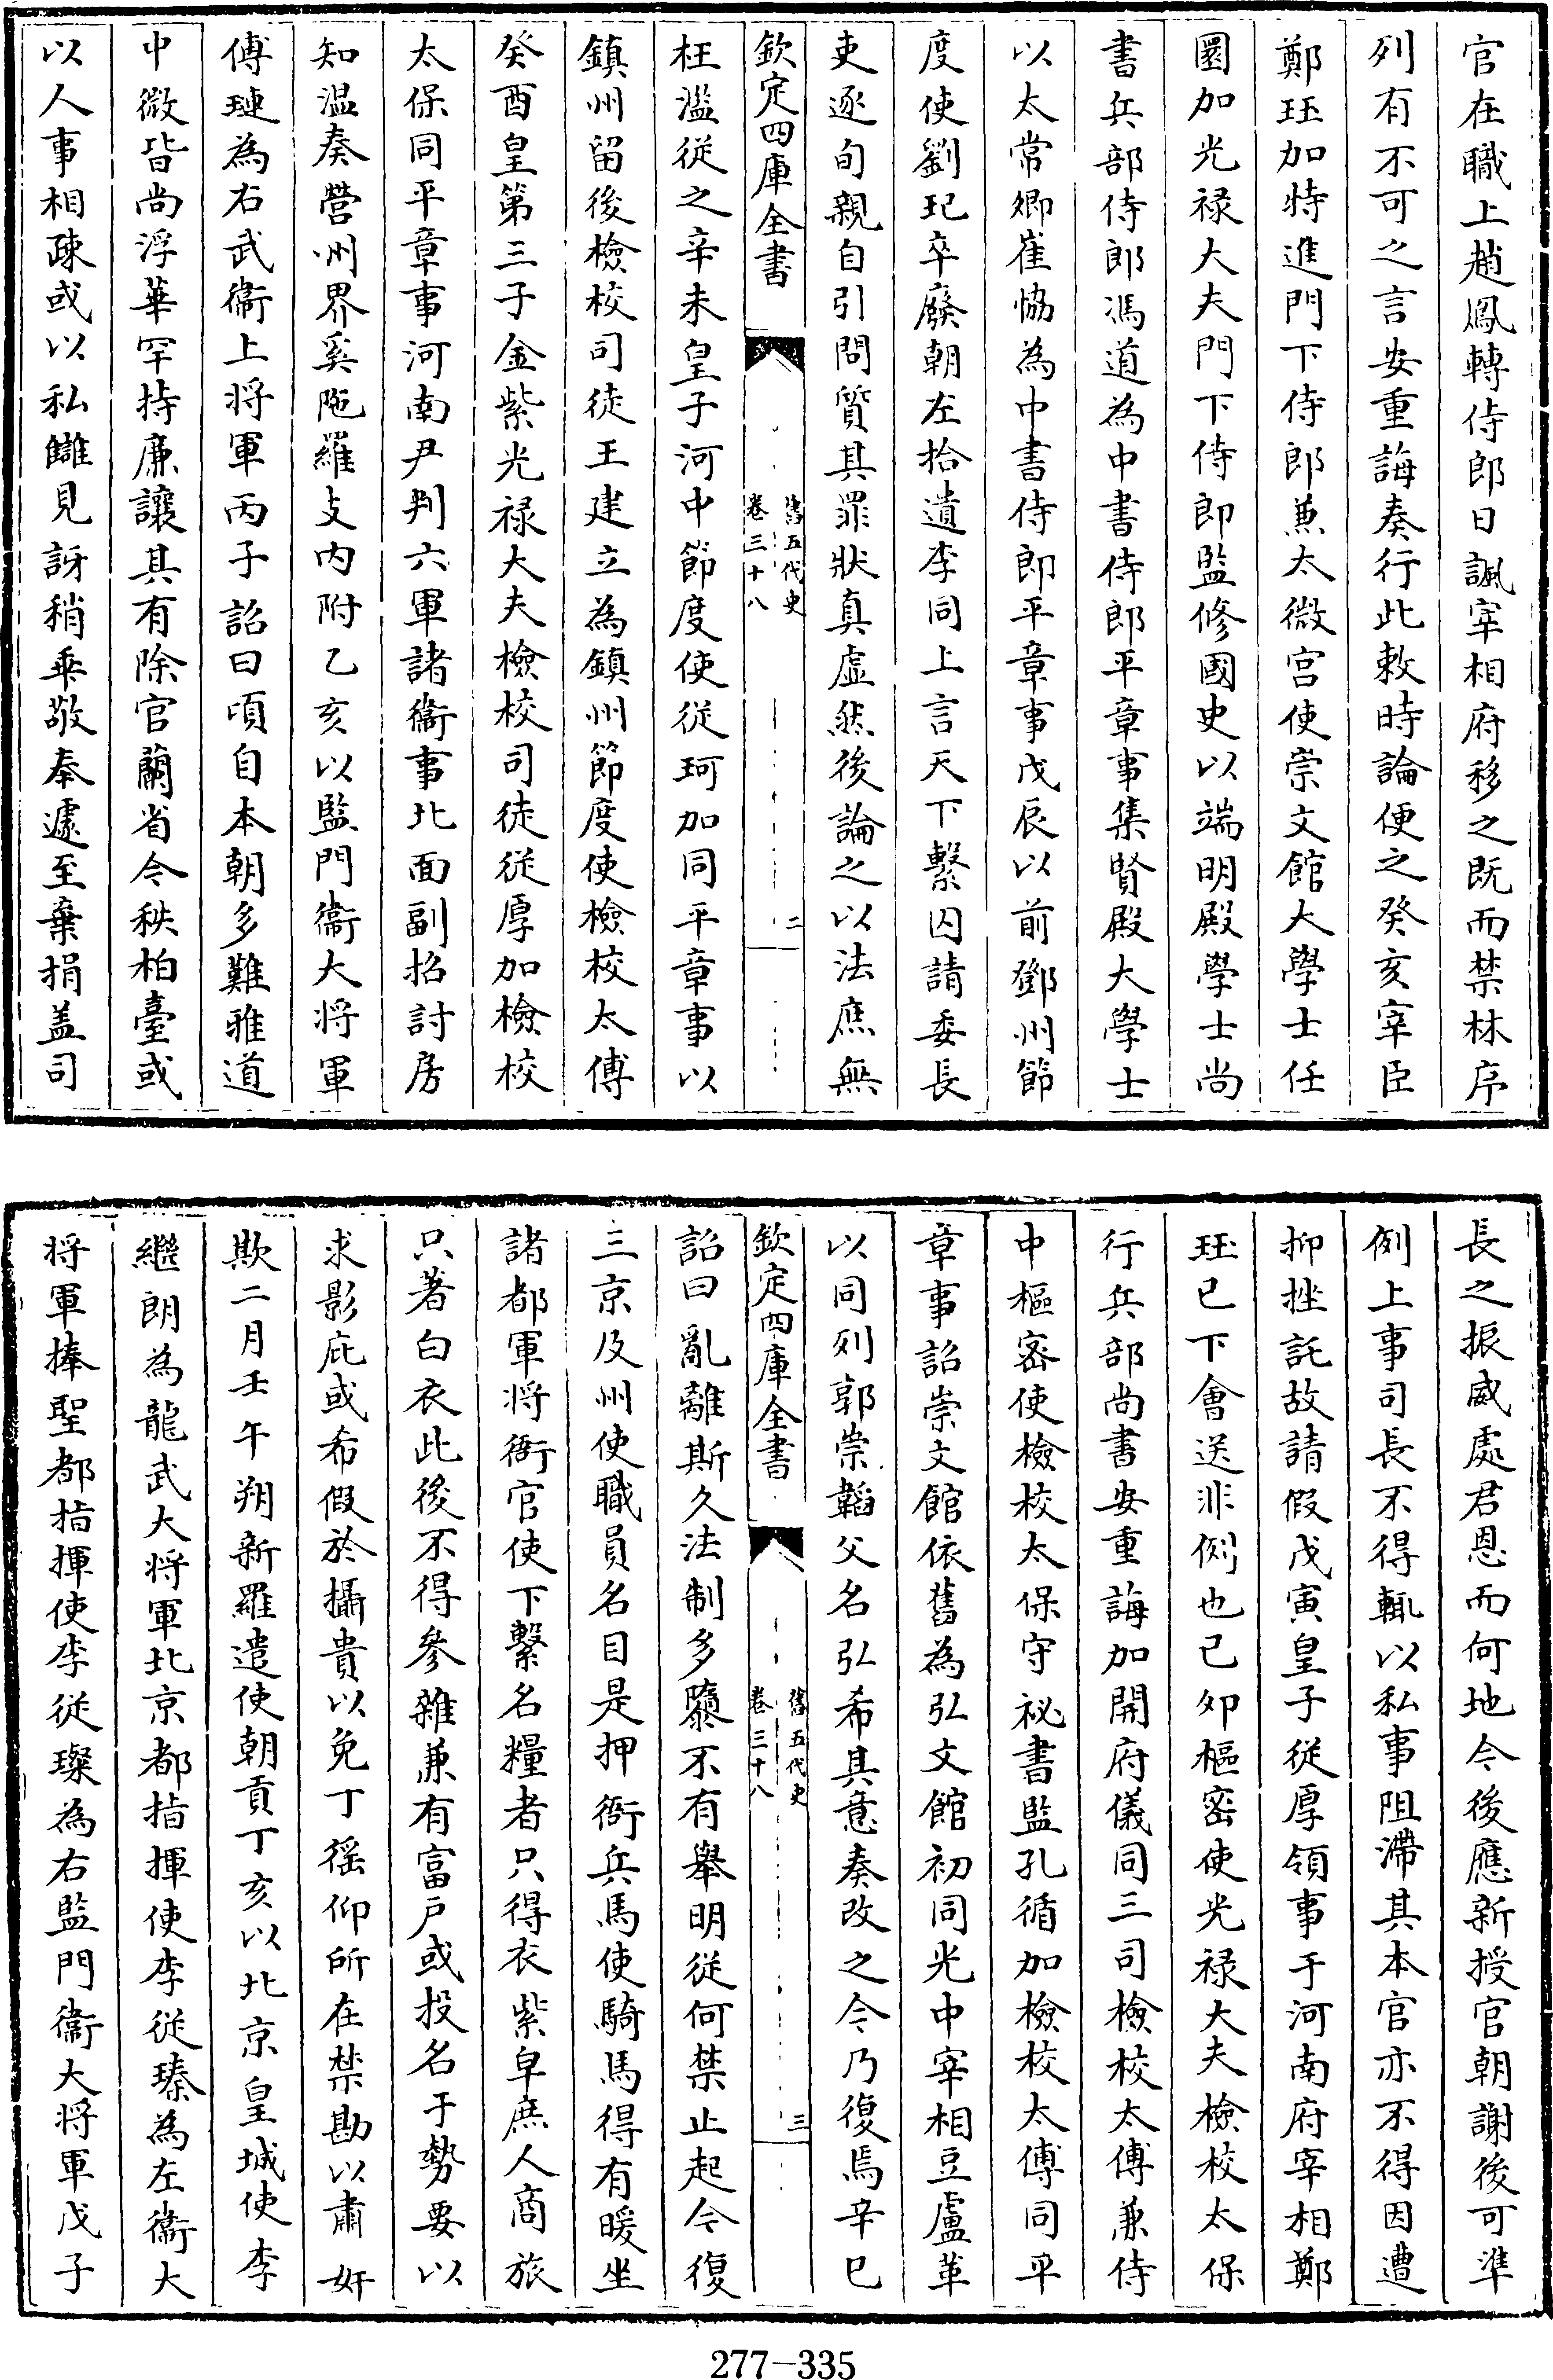 官在職上趙鳳轉侍郎日諷宰相府移之既而禁林序
列有不可之言安重誨奏行此敕時論便之癸亥宰臣
鄭珏加特進門下侍郎兼太微宫使崇文館大學士任
圜加光禄大夫門下侍郎監修國史以端明殿學士尚
書兵部侍郎馮道為中書侍郎平章事集賢殿大學士
以太常卿崔恊為中書侍郎平章事戊辰以前鄧州節
度使劉玘卒廢朝左拾遺李同上言天下繫囚請委長
吏逐旬親自引問質其罪狀真虚然後論之以法庶無
欽定四庫全書
舊五代史
卷三十八
二
枉濫從之辛未皇子河中節度使從珂加同平章事以
鎮州留後檢校司徒王建立為鎮州節度使檢校太傅
癸酉皇第三子金紫光禄大夫檢校司徒從厚加檢校
太保同平章事河南尹判六軍諸衞事北面副招討房
知温奏營州界奚陁羅支内附乙亥以監門衞大将軍
傅璉為右武衞上将軍丙子詔曰頃自本朝多難雅道
中微皆尚浮華罕持廉讓其有除官蘭省令秩柏臺或
以人事相疎或以私讎見訝稍乖敬奉遽至棄捐盖司
長之振威處君恩而何地今後應新授官朝謝後可準
例上事司長不得輒以私事阻滯其本官亦不得因遭
抑挫託故請假戊寅皇子從厚領事于河南府宰相鄭
珏已下會送非例也已夘樞密使光禄大夫檢校太保
行兵部尚書安重誨加開府儀同三司檢校太傅兼侍
中樞密使檢校太保守祕書監孔循加檢校太傅同平
章事詔崇文館依舊為弘文館初同光中宰相豆盧革
以同列郭崇韜父名弘希其意奏改之今乃復焉辛巳
欽定四庫全書
舊五代史
卷三十八
三
詔曰亂離斯久法制多隳不有舉明從何禁止起今復
三京及州使職員名目是押衙兵馬使騎馬得有暖坐
諸都軍将衙官使下繫名糧者只得衣紫皁庶人商旅
只著白衣此後不得參雜兼有富户或投名于勢要以
求影庇或希假於攝貴以免丁徭仰所在禁勘以肅奸
欺二月壬午朔新羅遣使朝貢丁亥以北京皇城使李
繼朗為龍武大将軍北京都指揮使李從臻為左衞大
将軍捧聖都指揮使李從璨為右監門衞大将軍戊子
277-335